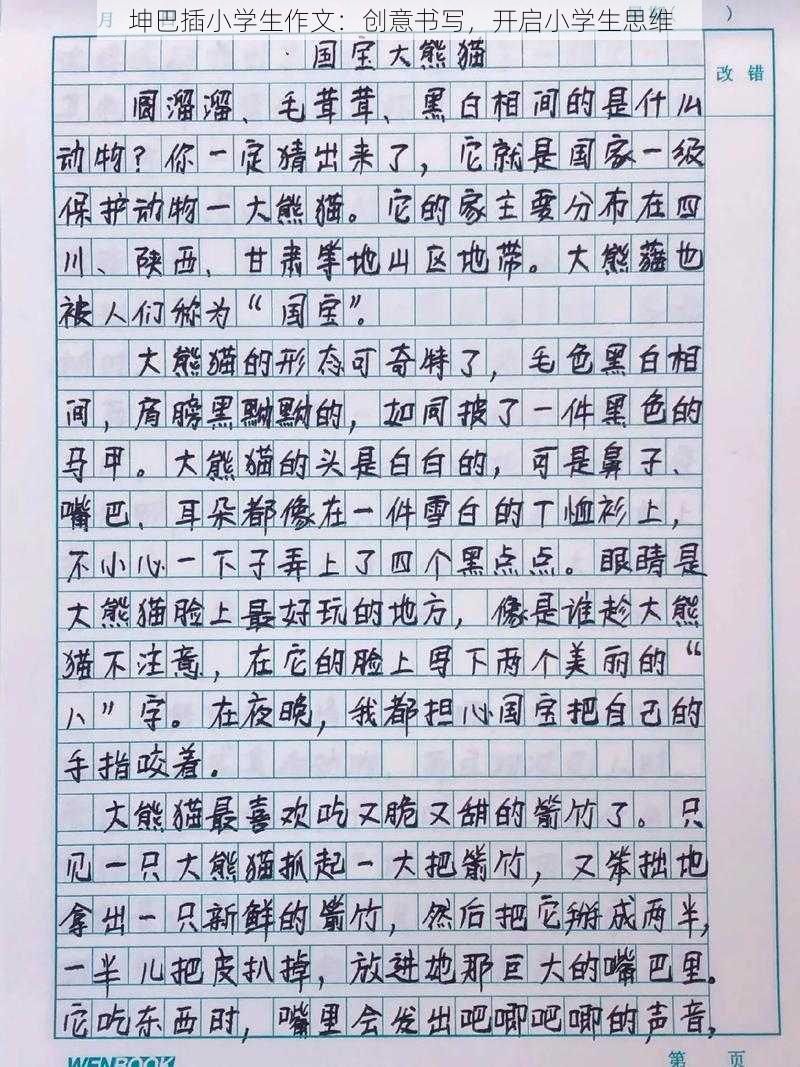 坤巴插小学生作文：创意书写，开启小学生思维
月
）
改 错
国宝大熊猫
圆溜溜、毛茸茸、黑白相间的是什么
动物？你一定猜出来了，它就是国家一级
保护动物一大熊猫。它的家主要分布在四
川、陕西、甘肃等地山区地带。大熊猫也
被人们称为“国宝”。
大熊猫的形态可奇特了，毛色黑白相
间，肩膀黑黝黝的，如同披了一件黑色的
马甲。大熊猫的头是白白的，可是鼻子、
嘴巴、耳朵都像在一件雪白的T恤衫上，
不小心一下子弄上了四个黑点点。眼睛是
大熊猫脸上最好玩的地方，像是谁趁大熊
猫不注意，在它的脸上写下两个美丽的“
八”字。在夜晚，我都担心国宝把自己的
手指咬着。
大熊猫最喜欢吃又脆又甜的箭竹了。只
见一只大熊猫抓起一大把箭竹，又笨拙地
拿出一只新鲜的箭竹，然后把它掰成两半，
一半儿把皮扒掉，放进她那巨大的嘴巴里。
它吃东西时，嘴里会发出吧唧吧唧的声音，
WENBOOK
第 页